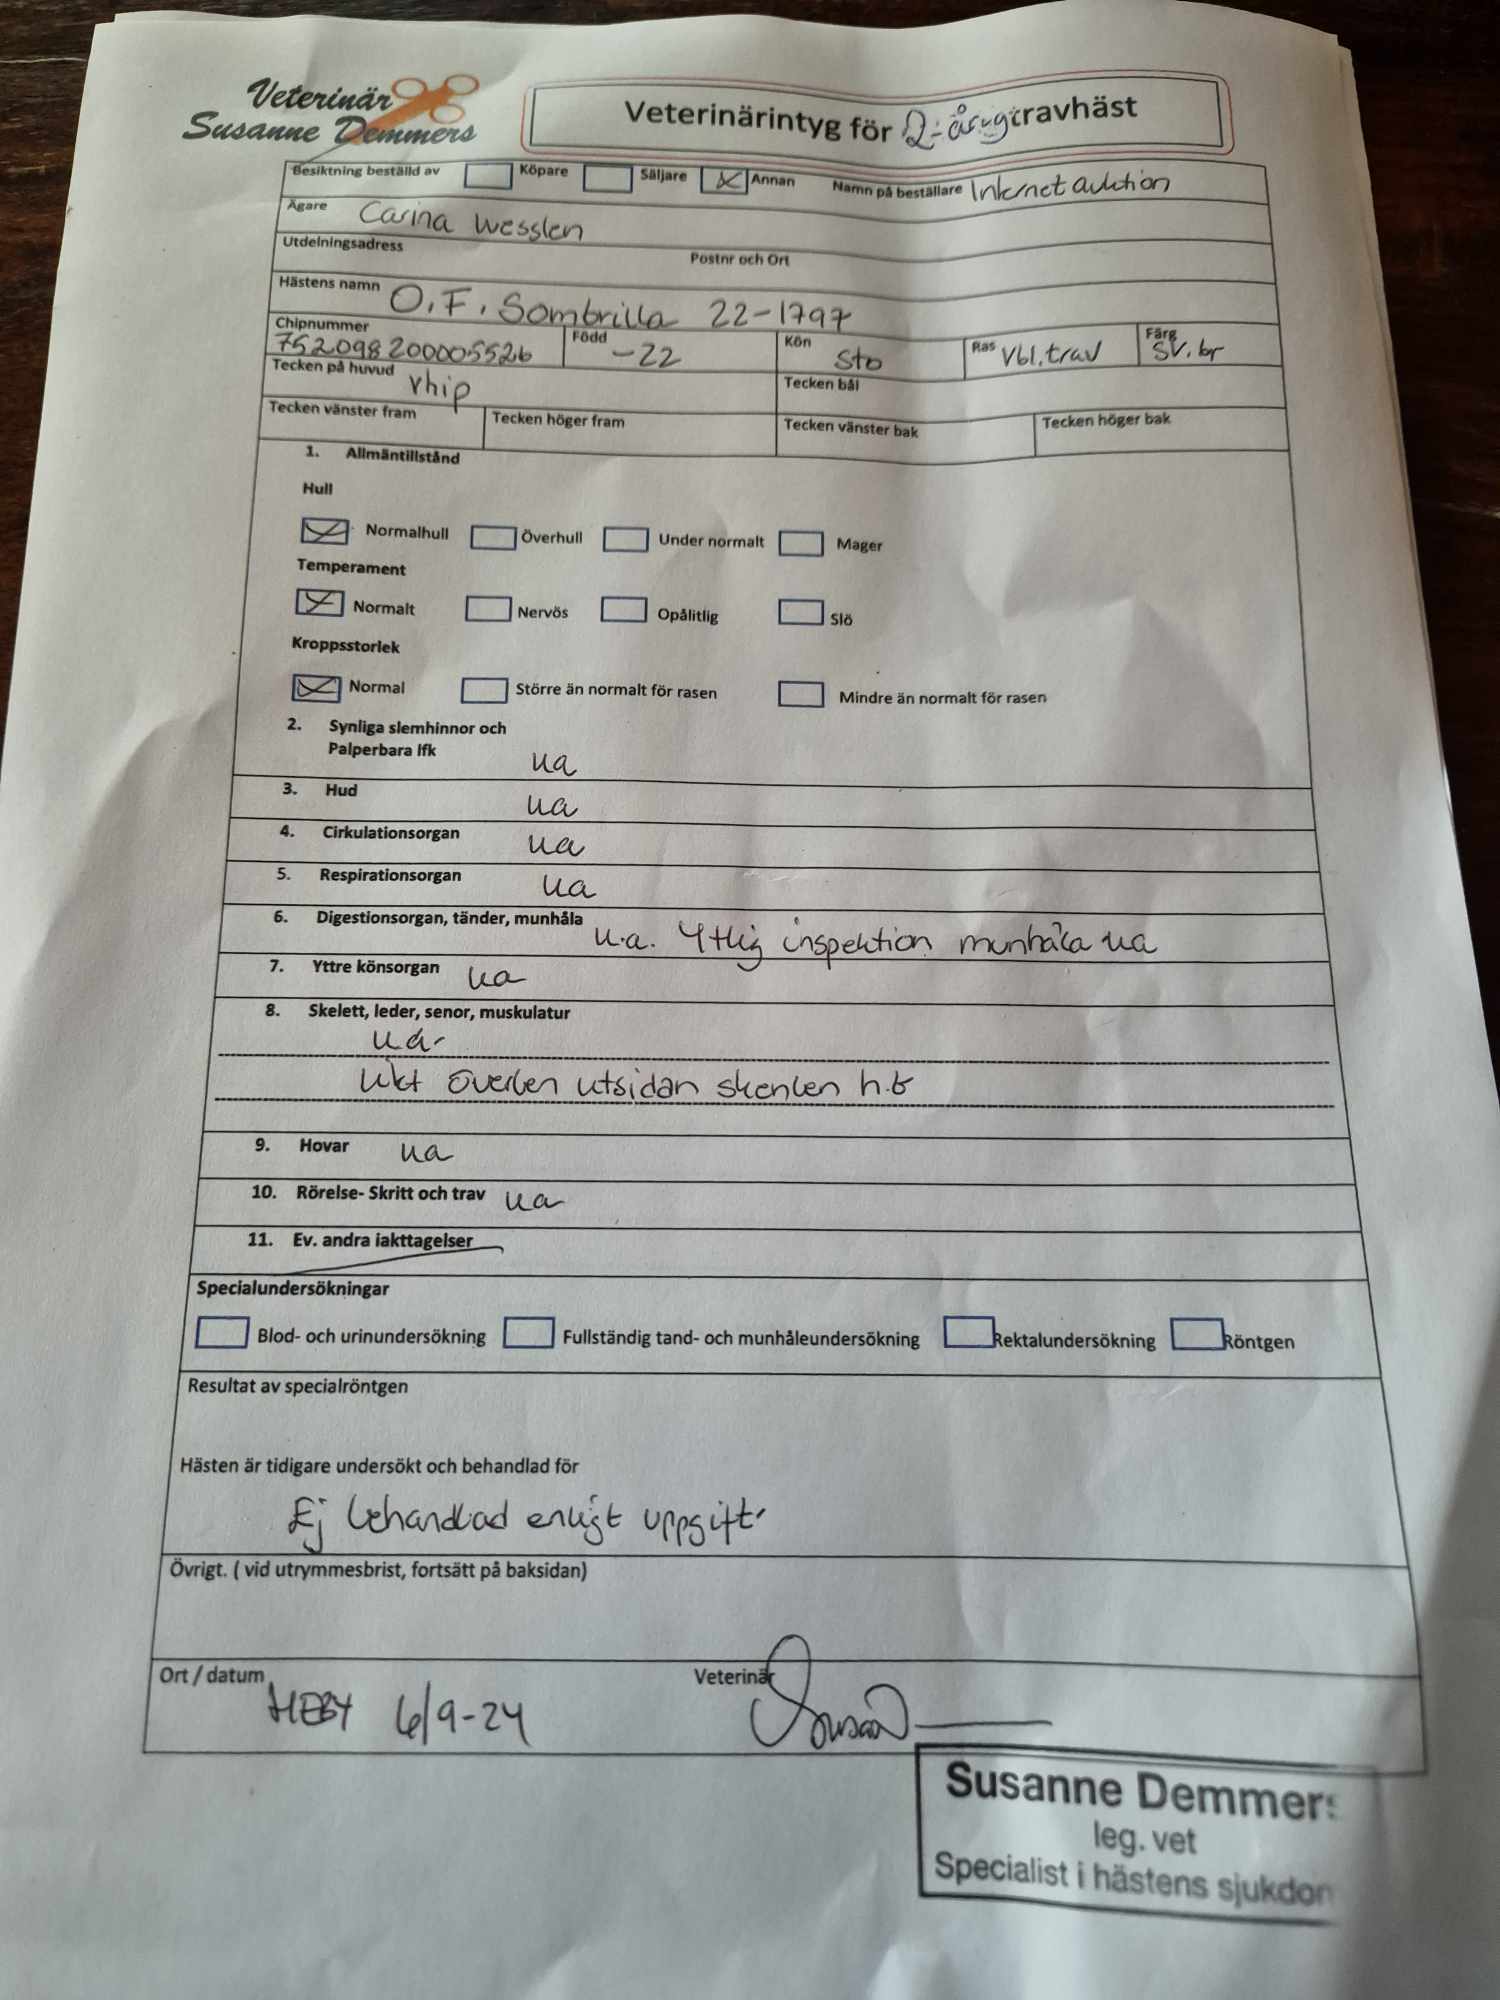 Veterinär
Susanne Demmers
Veterinärintyg för 2-årig travhäst
Besiktning beställd av Köpare Säljare Annan Namn på beställare Internetauktion
Ägare Carina Wesslen
Utdelningsadress Postnr och Ort
Hästens namn O.F. Sombrilla 22-1797
Chipnummer 752098200005526 Född -22 Kön Sto Ras Vbl.trav Färg Sv.br
Tecken på huvud Tecken bål
Tecken vänster fram Tecken höger fram Tecken vänster bak Tecken höger bak
1. Allmäntillstånd
Hull
Normalhull Överhull Under normalt Mager
Temperament
Normalt Nervös Opålitlig Slö
Kroppsstorlek
Normal Större än normalt för rasen Mindre än normalt för rasen
2. Synliga slemhinnor och
Palperbara lfk ua
3. Hud ua
4. Cirkulationsorgan ua
5. Respirationsorgan ua
6. Digestionsorgan, tänder, munhåla u.a. Ytlig inspektion munhåla ua
7. Yttre könsorgan ua
8. Skelett, leder, senor, muskulatur
ua.
litet överben utsidan skenben h.b
9. Hovar ua
10. Rörelse- Skritt och trav ua
11. Ev. andra iakttagelser
Specialundersökningar
Blod- och urinundersökning Fullständig tand- och munhåleundersökning Rektalundersökning Röntgen
Resultat av specialröntgen
Hästen är tidigare undersökt och behandlad för
Ej behandlad enligt uppgift.
Övrigt. ( vid utrymmesbrist, fortsätt på baksidan)
Ort / datum HEBY 6/9-24 Veterinär
Susanne Demmers
leg. vet
Specialist i hästens sjukdom